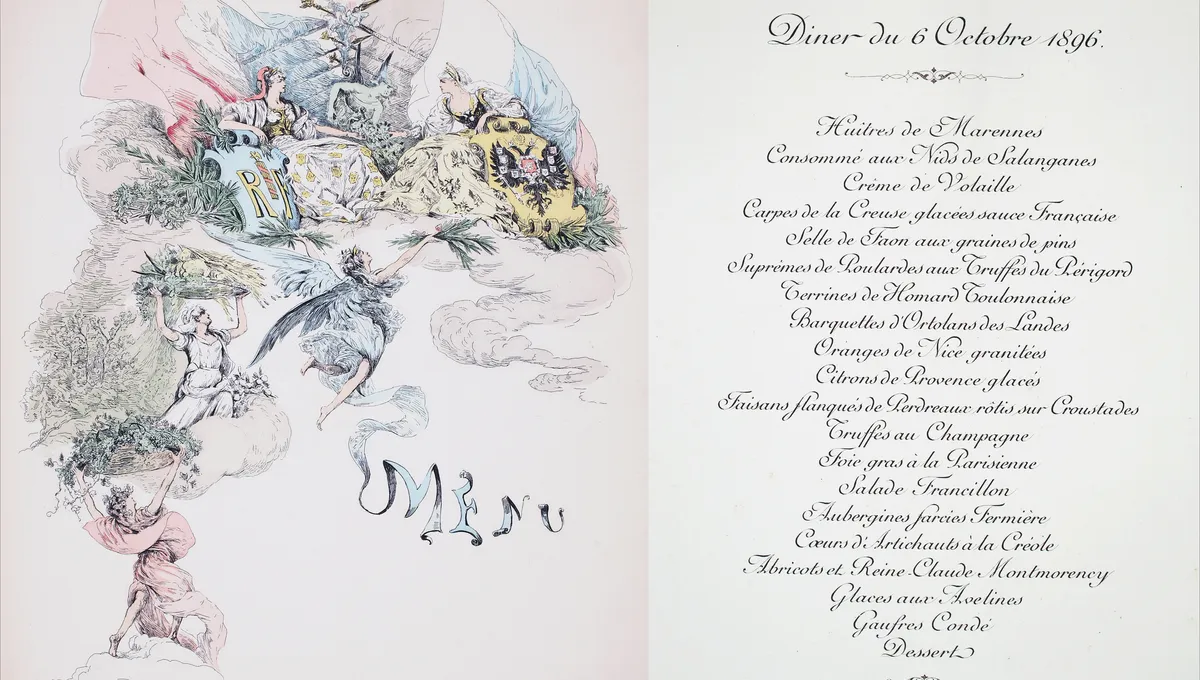 RF
MENU
Diner du 6 Octobre 1896.
Huitres de Marennes
Consommé aux Nids de Salanganes
Crême de Volaille
Carpes de la Creuse glacées sauce Française
Selle de Faon aux graines de pins
Suprémes de Poulardes aux Truffes du Périgord
Terrines de Homard Toulonnaise
Barquettes d'Ortolans des Landes
Oranges de Nice granitées
Citrons de Provence glacés
Faisans flanqués de Perdreaux rôtis sur Croustades
Truffes au Champagne
Foie gras à la Parisienne
Salade Francillon
Aubergines farcies Fermière
Cœurs d'Artichauts à la Créole
Abricots et Reine-Claude Montmorency
Glaces aux Avelines
Gaufres Condé
Dessert